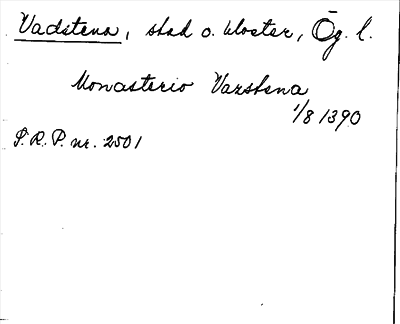 Vadstena, stad o. kloster, Ög. l.
Monasterio Vazstena
1/8 1390
S.R.P. nr. 2501